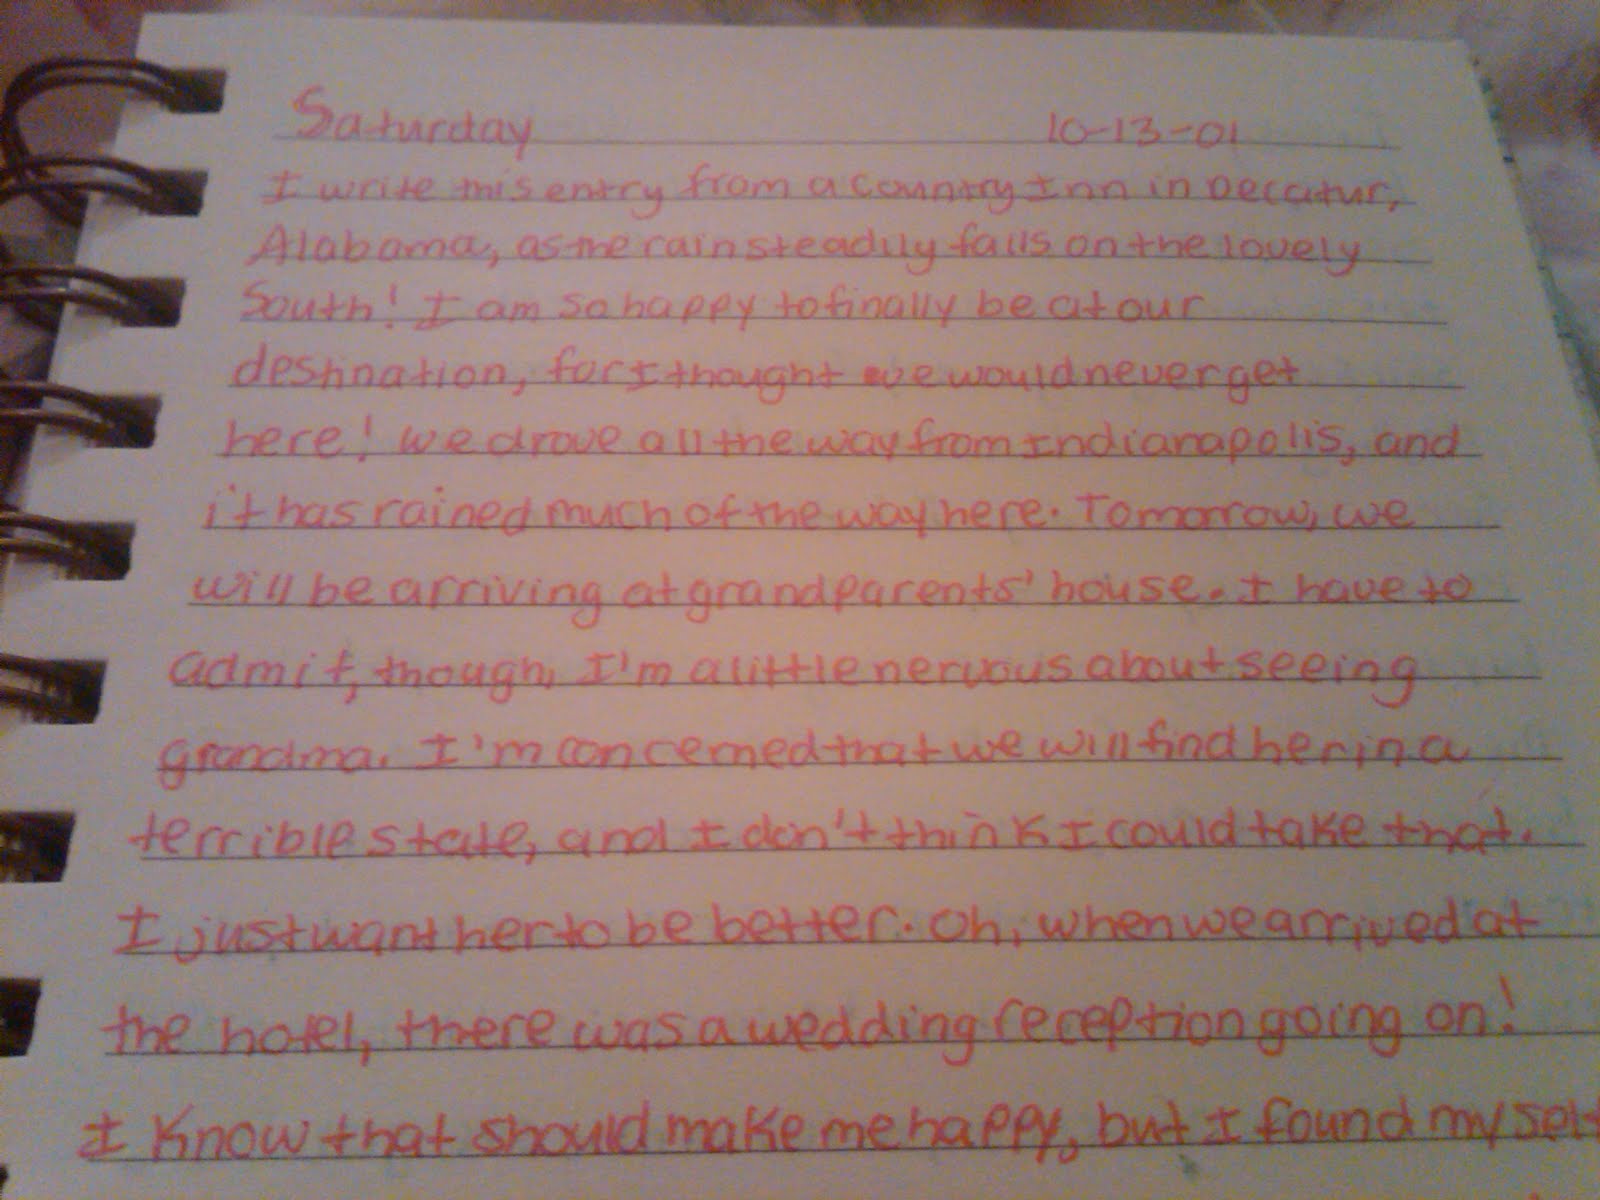 Saturday 10-13-01
I write this entry from a Country Inn in Decatur,
Alabama, as the rain steadily falls on the lovely
South! I am so happy to finally be at our
destination, for I thought we would never get
here! We drove all the way from Indianapolis, and
it has rained much of the way here. Tomorrow, we
will be arriving at grandparents' house. I have to
admit, though, I'm a little nervous about seeing
grandma. I'm concerned that we will find her in a
terrible state, and I don't think I could take that.
I just want her to be better. Oh, when we arrived at
the hotel, there was a wedding reception going on!
I know that should make me happy, but I found myself